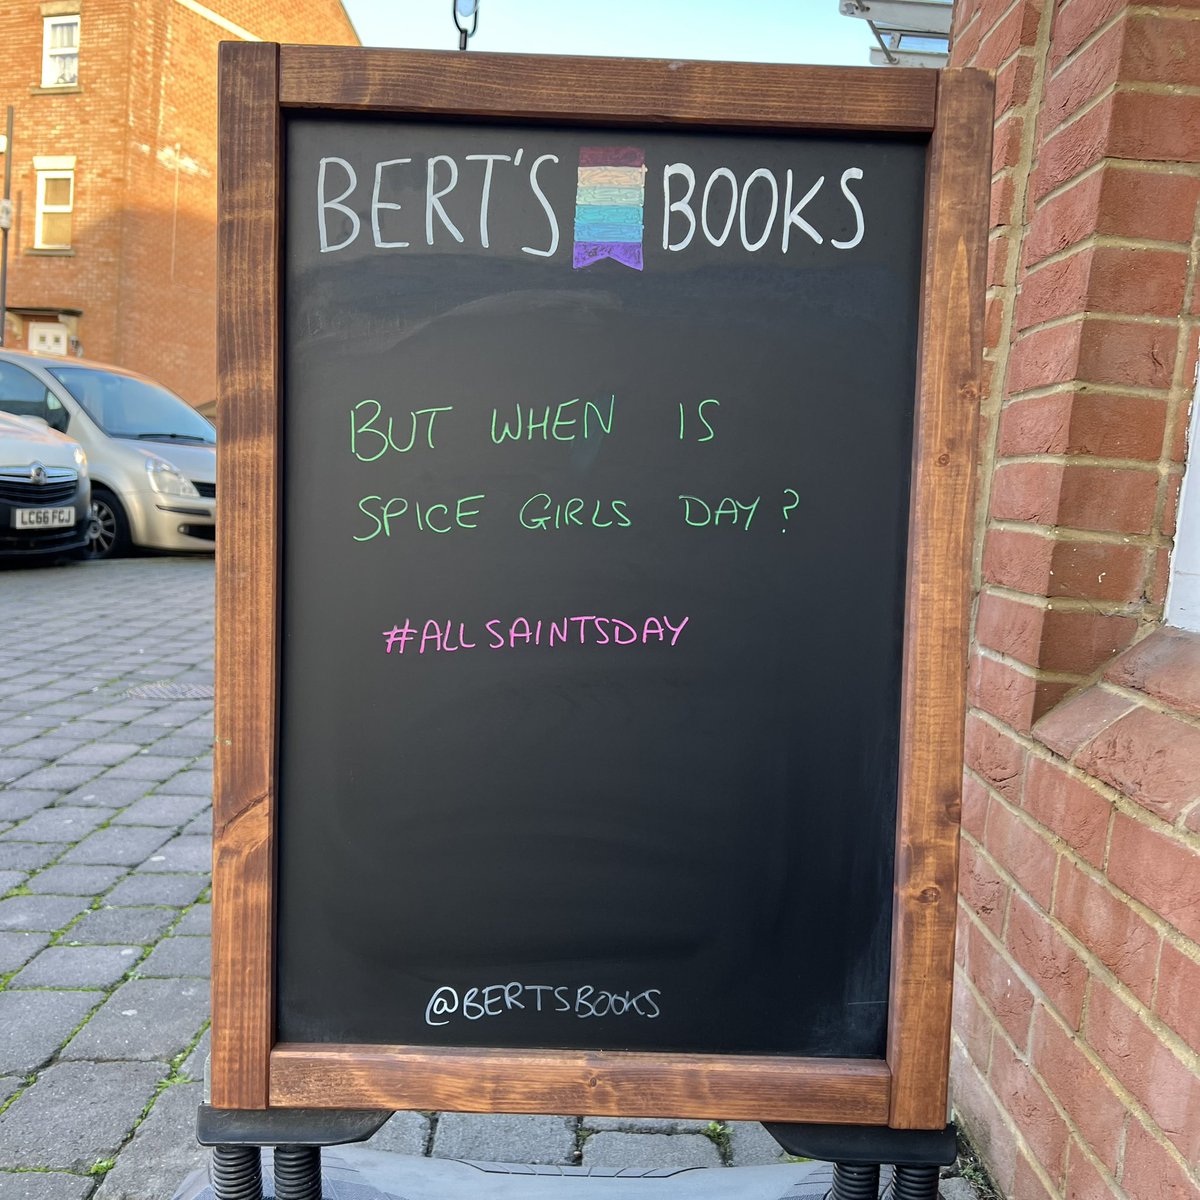 BERT'S BOOKS
BUT WHEN IS
SPICE GIRLS DAY?
#ALLSAINTSDAY
@BERTSBOOKS
LC66 FGJ